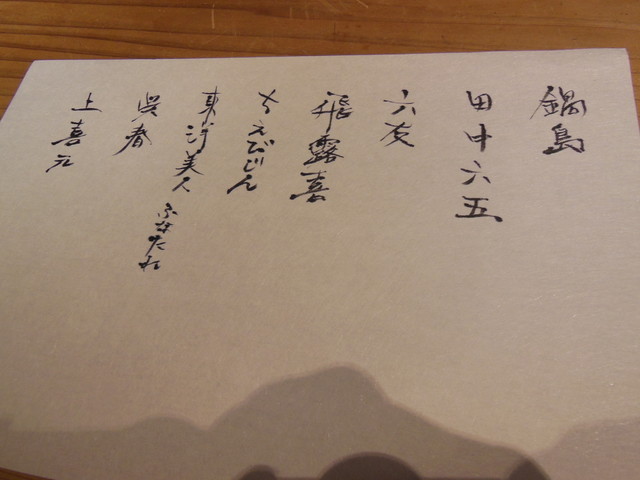 鍋島
田中六五
六友
飛露喜
ちえびじん
東洋美人 ふなたれ
呉春
上喜元